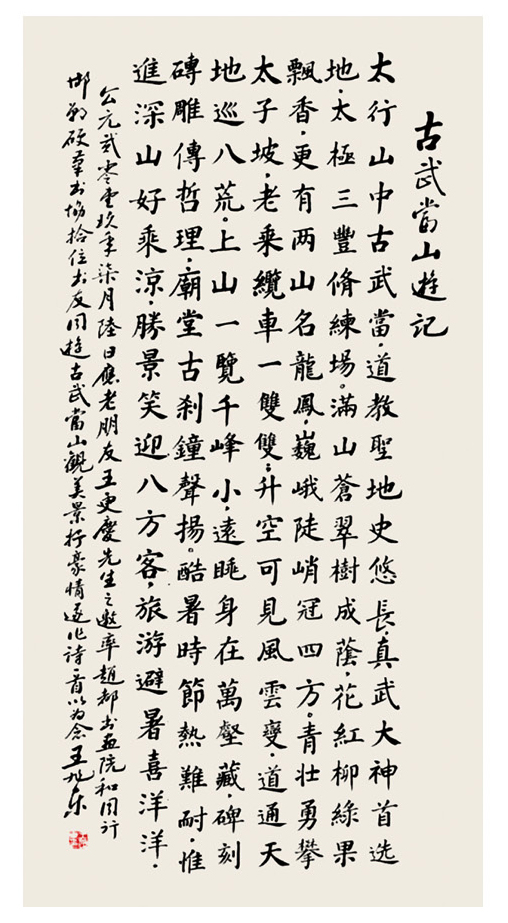 古武當山遊記
太行山中古武當.道教聖地史悠長.真武大神首选
地.太極三豐脩練場。滿山蒼翠樹成蔭,花紅柳綠果
飄香.更有两山名龍鳳,巍峨陡峭冠四方。青壮勇攀
太子坡.老乘纜車一雙雙;升空可見風雲變.道通天
地巡八荒。上山一覽千峰小,遠眺身在萬壑藏.碑刻
磚雕傳哲理.廟堂古刹鐘聲揚。酷暑時節熱難耐.惟
進深山好乘涼.勝景笑迎八方客,旅游避暑喜洋洋.
公元貳零壹玖年柒月陸日應老朋友王更慶先生之邀率趙都书画院和同行
邯郸硬筆书協拾位书友同遊古武當山觀美景抒豪情遂作詩一首以为念王旭东